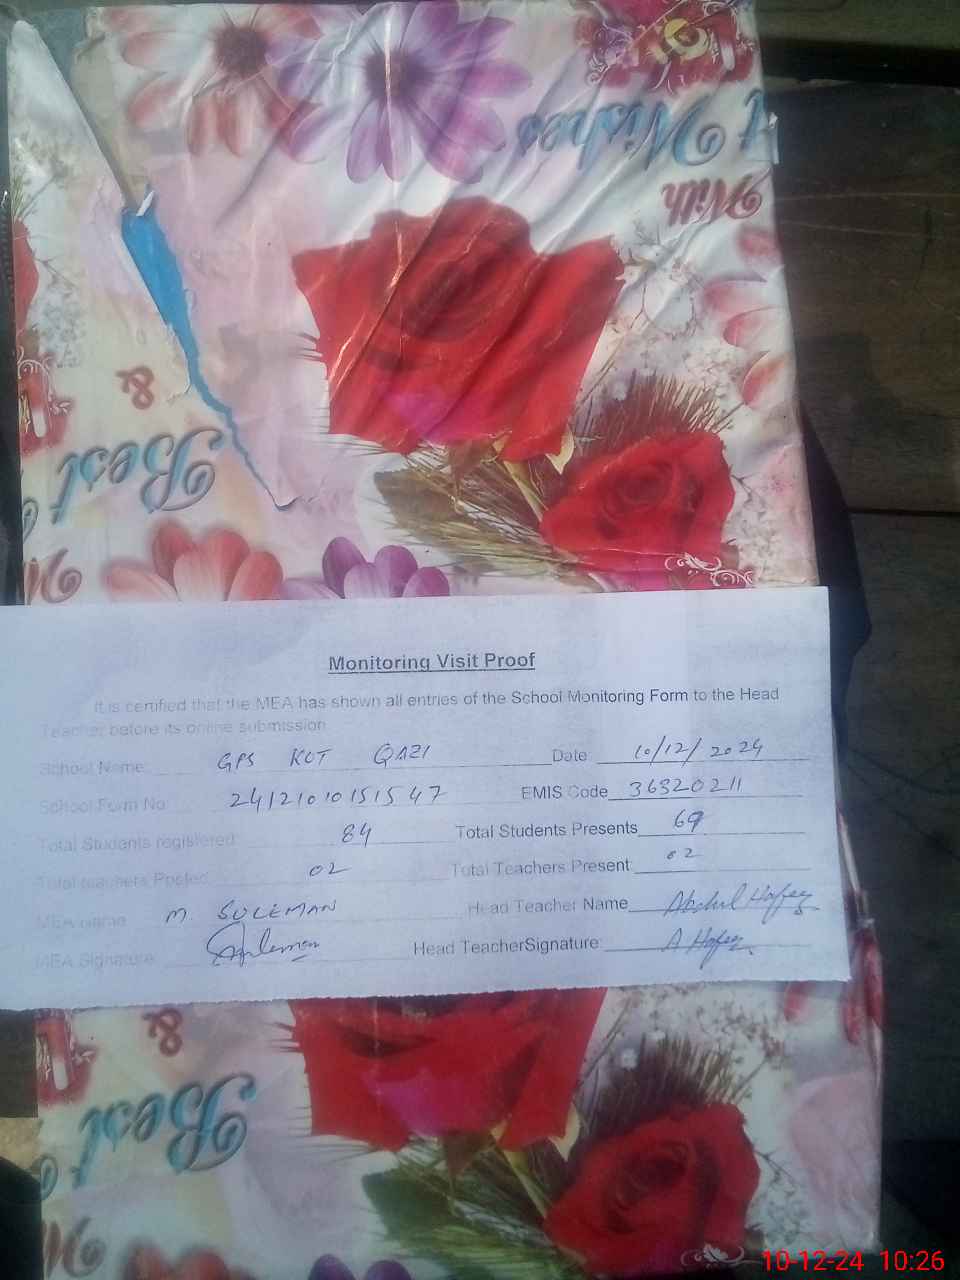 t Wishes
With
&
Best
Monitoring Visit Proof
It is certified that the MEA has shown all entries of the School Monitoring Form to the Head
Teacher before its online submission.
School Name: GPS KOT QAZI Date: 10/12/2024
School Form No: 24121010151547 EMIS Code 36320211
Total Students registered: 84 Total Students Presents 69
Total teachers Posted: 02 Total Teachers Present: 02
MEA name: M. SULEMAN Head Teacher Name Abdul Hafeez
MEA Signature: Suleman Head TeacherSignature: A Hafeez
&
Best
10-12-24 10:26